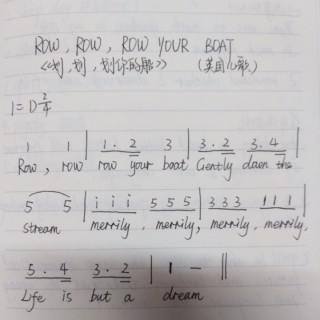 ROW, ROW, ROW YOUR BOAT
《划,划,划你的船》 (英国儿歌)
1=D 2/4
1 1 | 1. 2 3 | 3. 2 3. 4 |
Row, row row your boat Gently down the
5 5 | i i i 5 5 5 | 3 3 3 1 1 1 |
stream merrily, merrily, merrily, merrily,
5. 4 3. 2 | 1 - ||
Life is but a dream